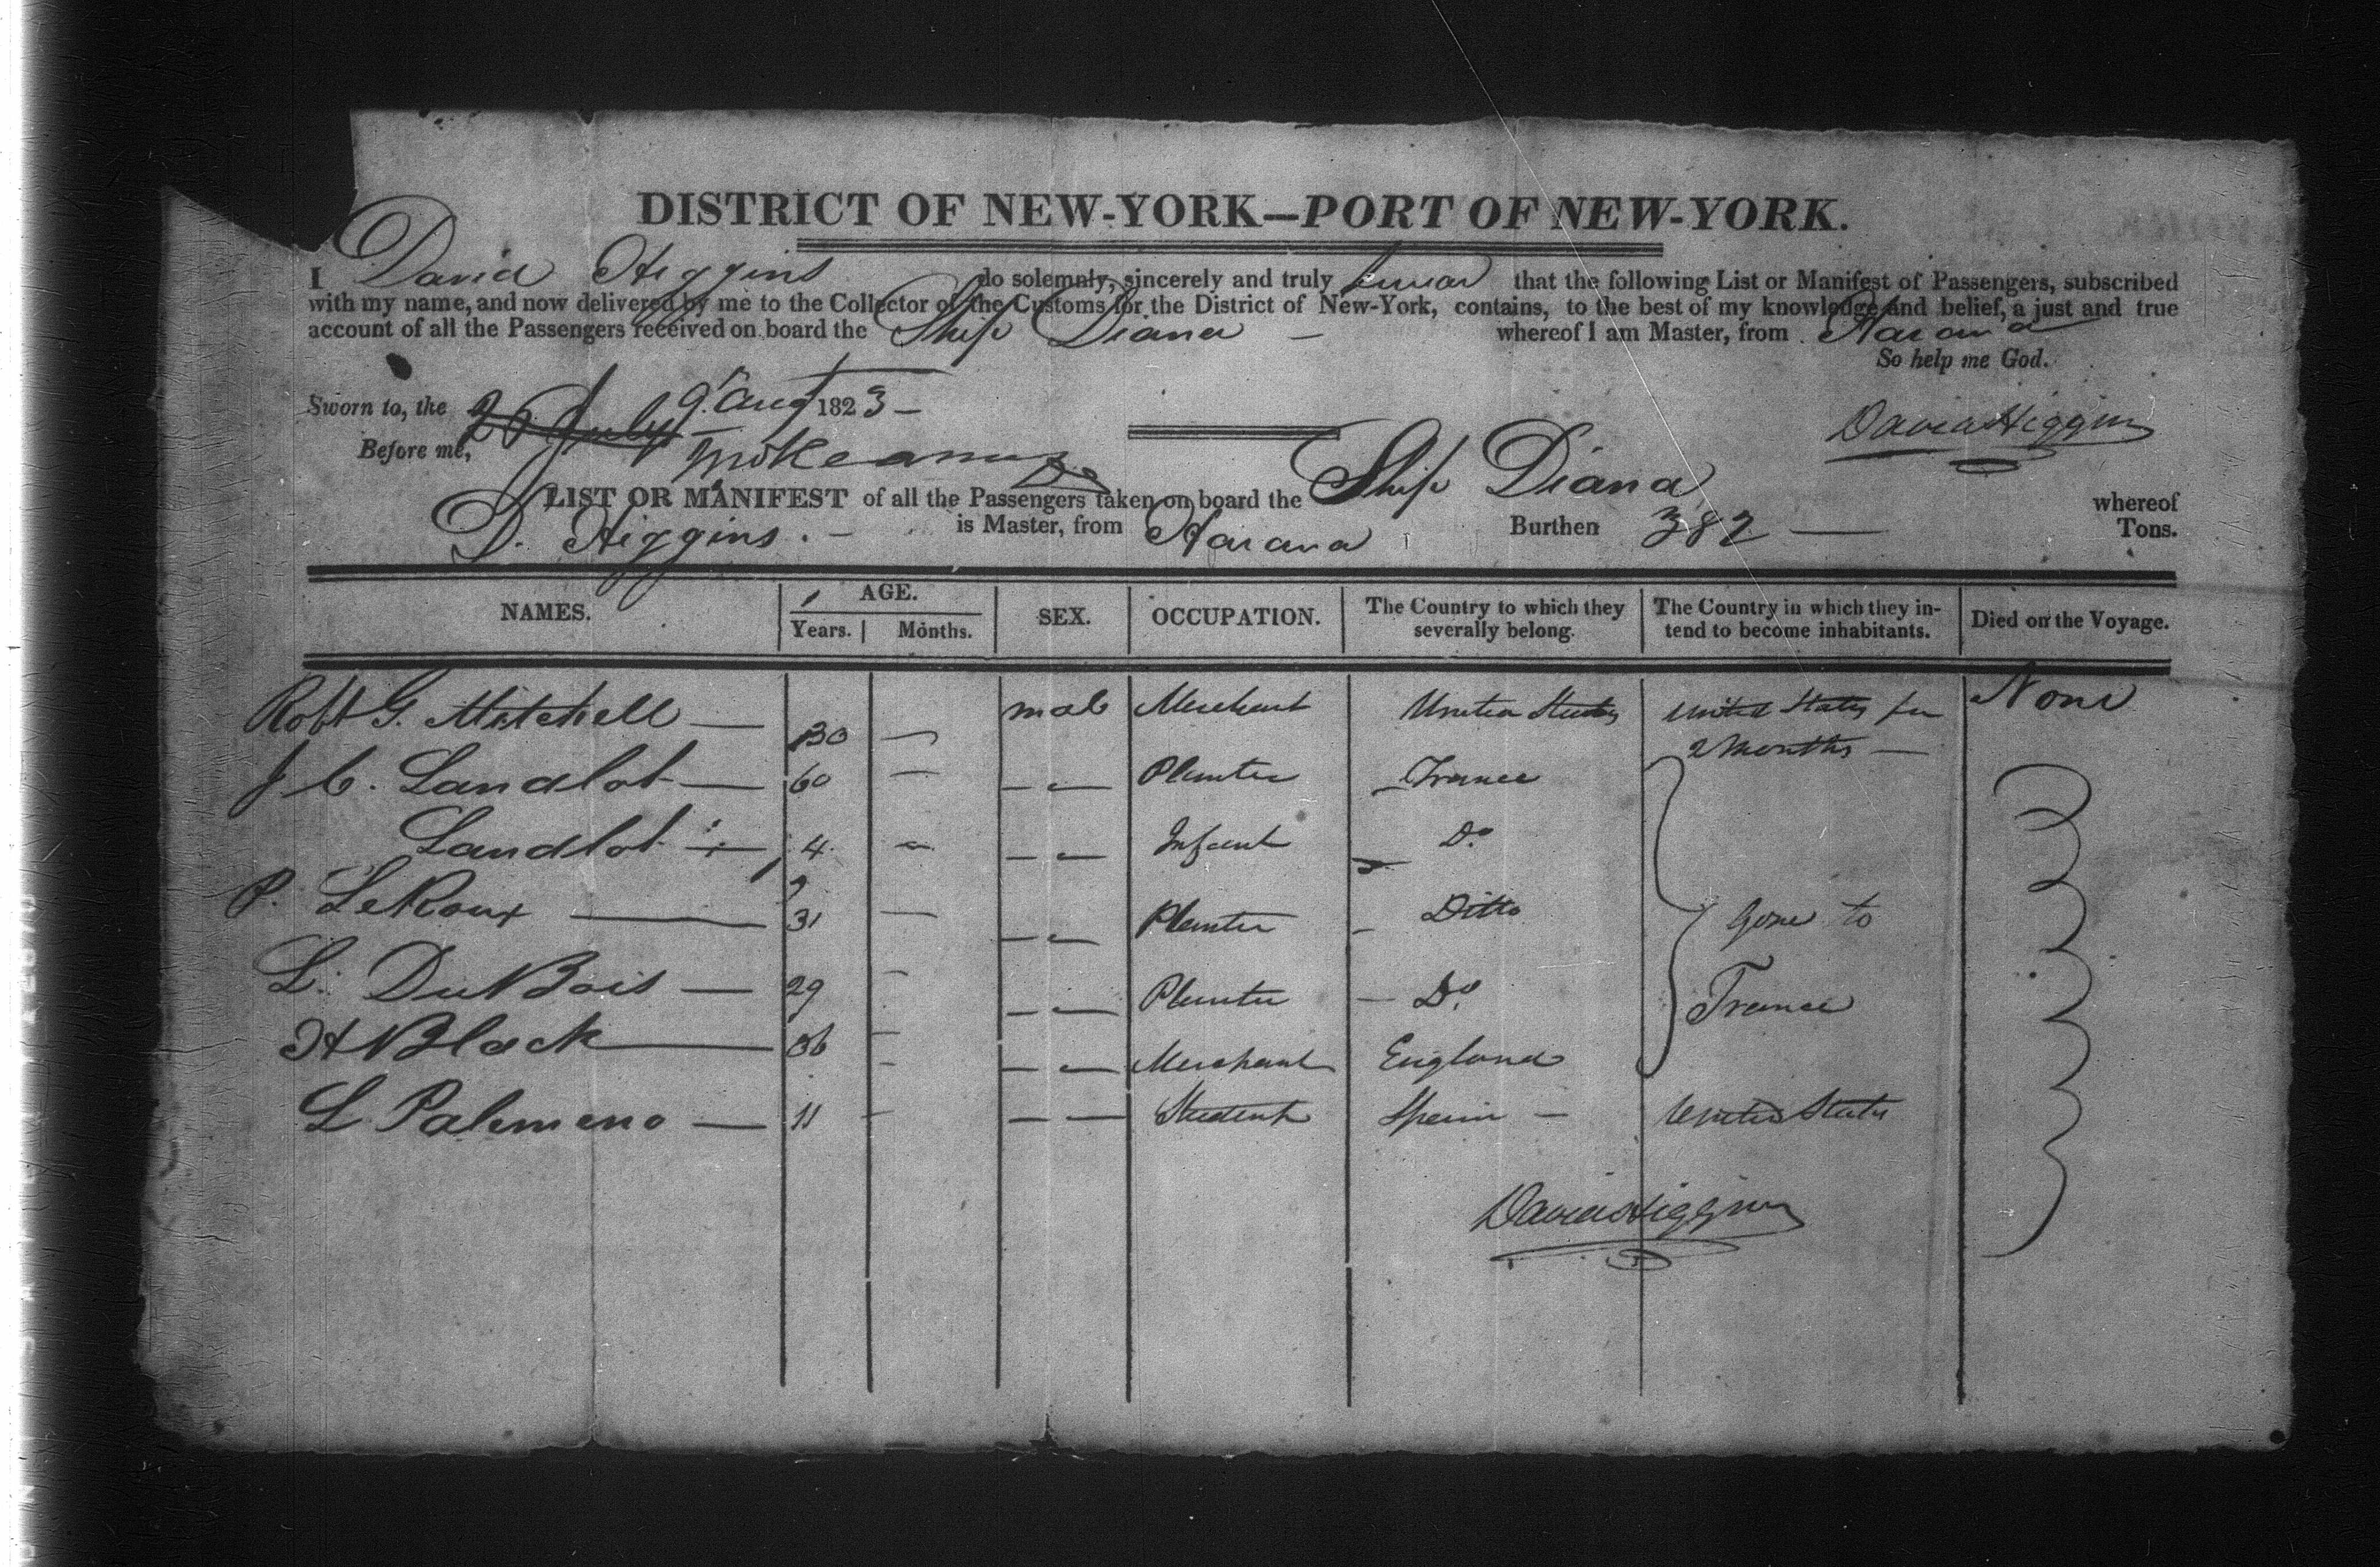 DISTRICT OF NEW-YORK—PORT OF NEW-YORK.
I David Higgins do solemnly, sincerely and truly swear that the following List or Manifest of Passengers, subscribed
with my name, and now delivered by me to the Collector of the Customs for the District of New-York, contains, to the best of my knowledge and belief, a just and true
account of all the Passengers received on board the Ship Diana — whereof I am Master, from Havana
So help me God.
Sworn to, the 26 July 9 Augt 1823 —
David Higgins
Before me,
LIST OR MANIFEST of all the Passengers taken on board the Ship Diana whereof
D. Higgins. — is Master, from Havana Burthen 382 — Tons.
NAMES. AGE. SEX. OCCUPATION. The Country to which they severally belong. The Country in which they intend to become inhabitants. Died on the Voyage.
Years. Months.
Robt G. Mitchell — 30 — male Merchant United States United States for None
2 months —
J C. Landlot — 60 — — — Planter France
Landlot 4 — — — Infant Do
P. LeRoux — 31 — — — Planter — Ditto Gone to
L. DuBois — 29 — — — Planter — Do France
H Black — 36 — — — Merchant England
L Palemeno — 11 — — — Student Spain — United States
David Higgins